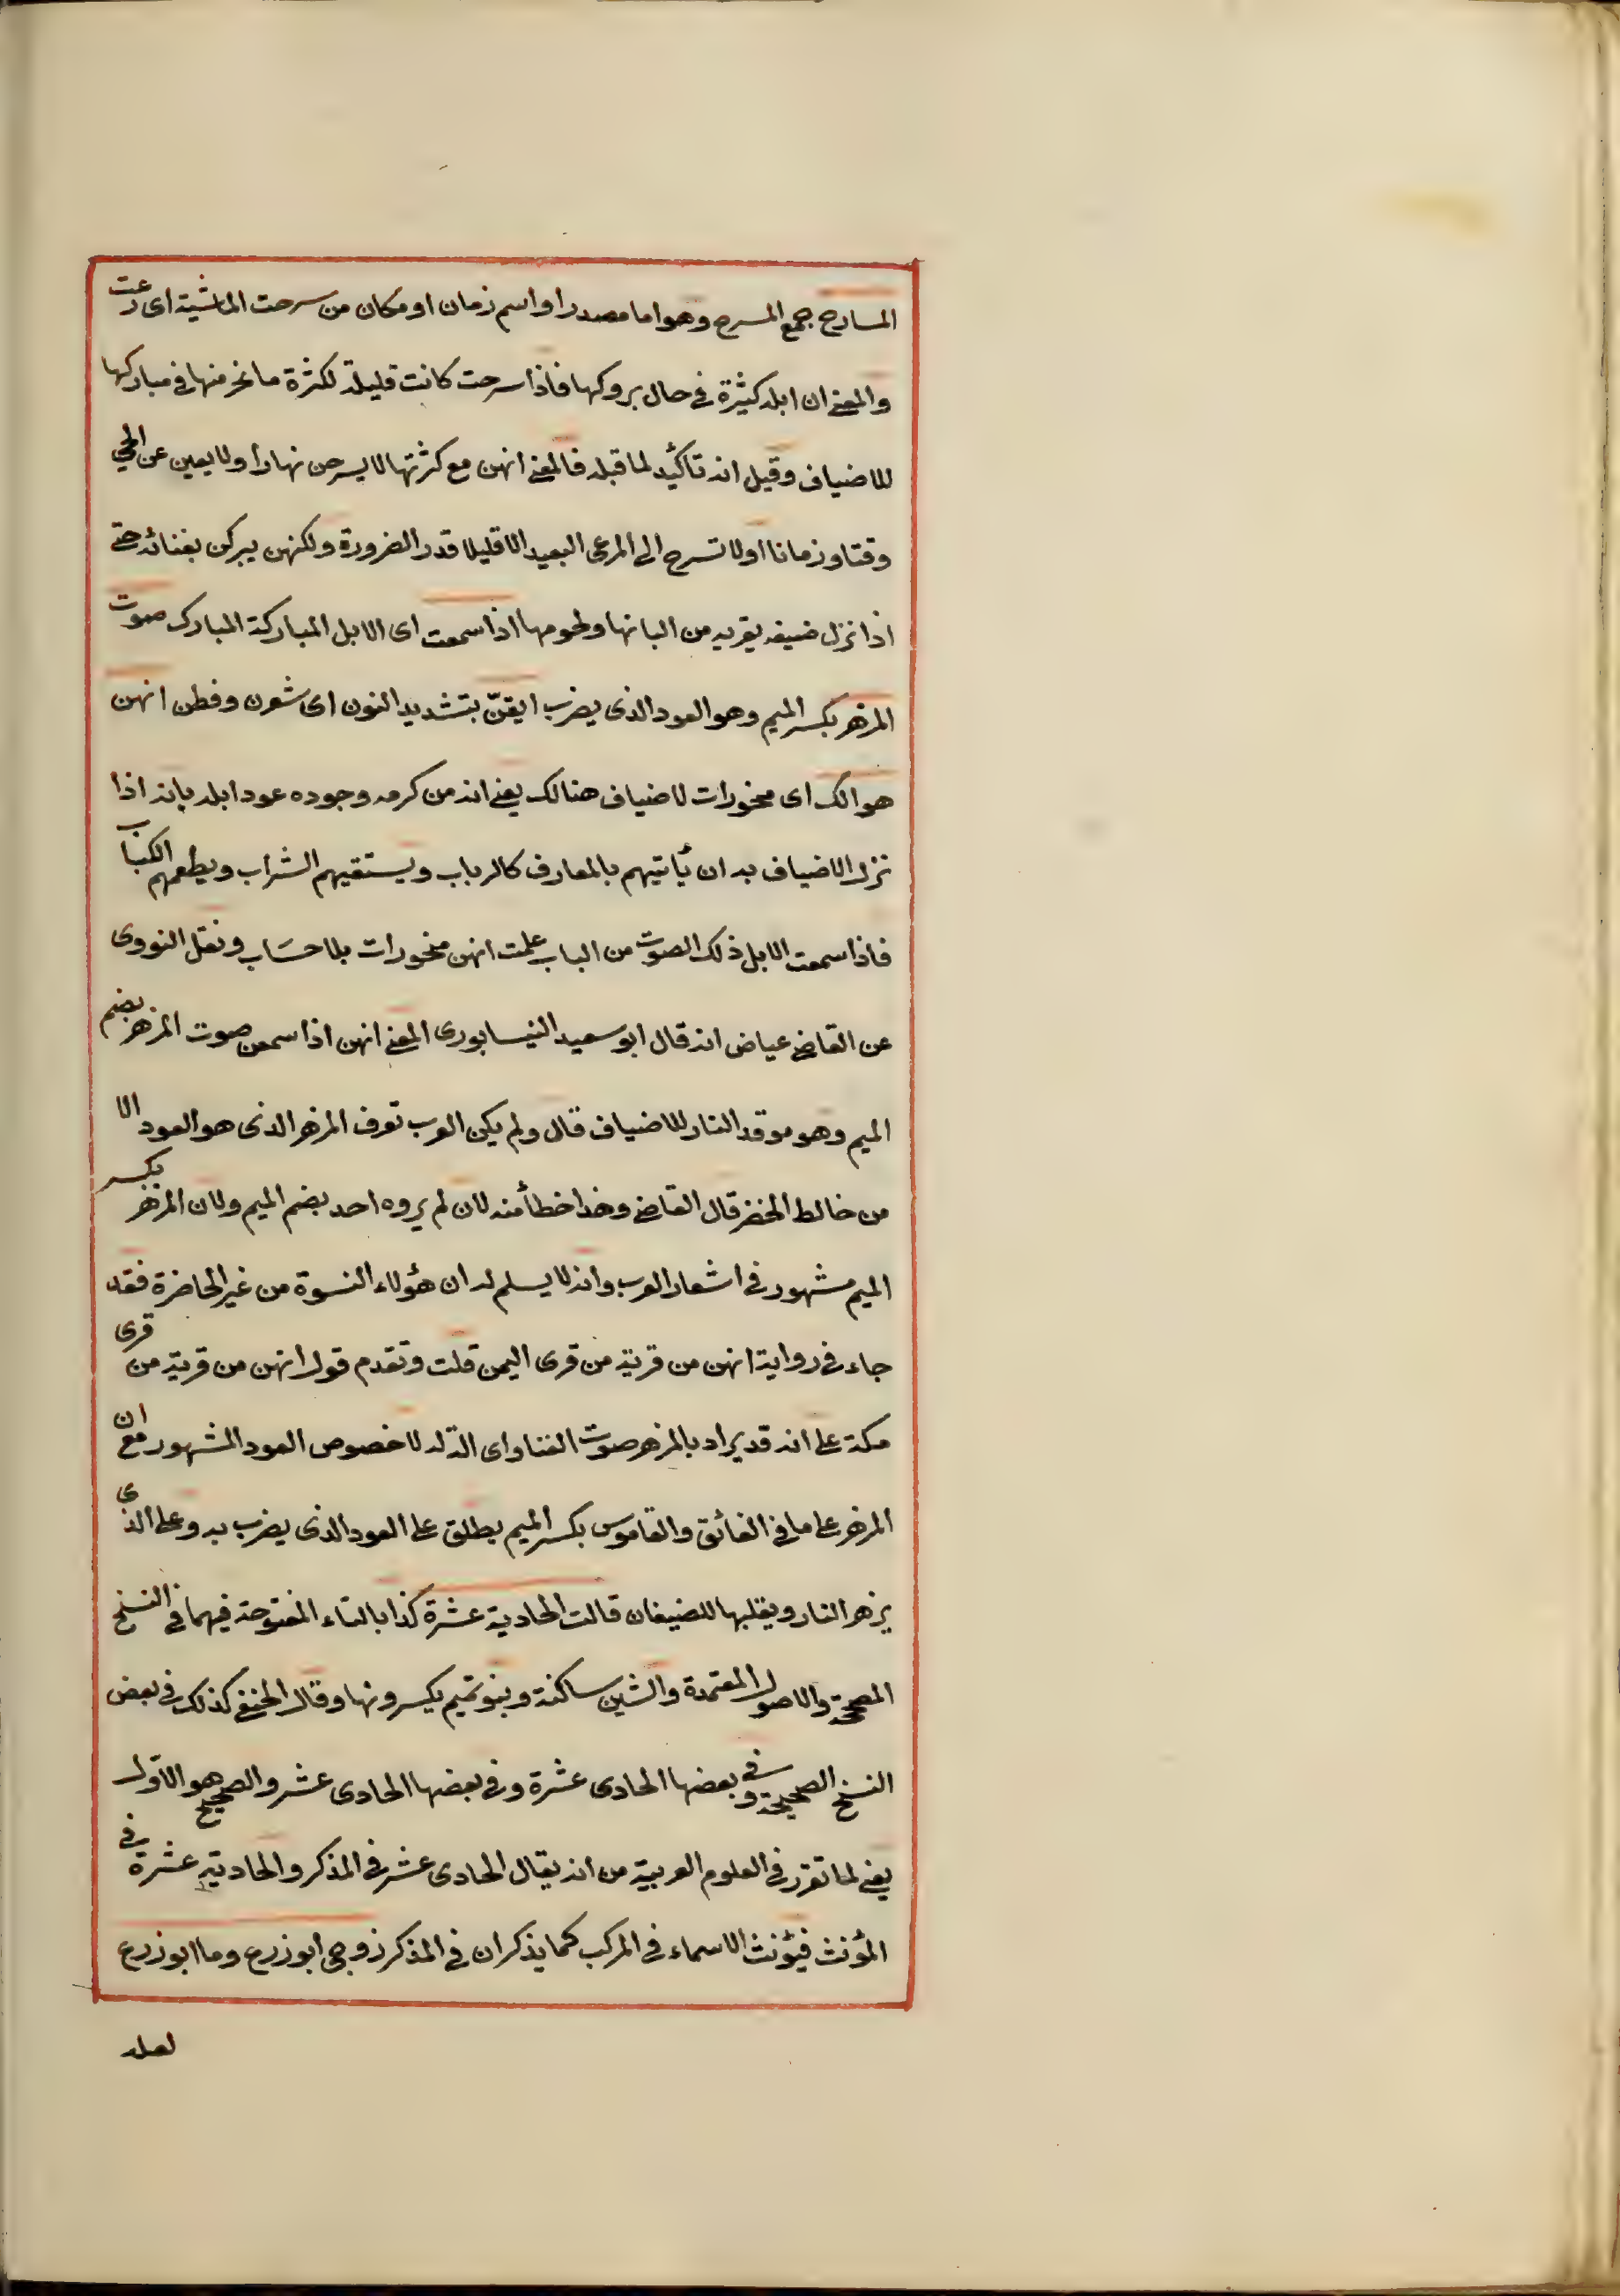 المسارح جمع المسرح وهو اما مصدر او اسم زمان او مكان من سرحت الماشية اى رعت
والمعنى ان ابله كثيرة فى حال بروكها فاذا سرحت كانت قليلة لكثرة ما نحر منها فى مباركها
للاضياف وقيل انه تاكيد لما قبله فالمعنى انهن مع كثرتها لا يسرحن نهارا ولا يغبن عن الحي
وقتا وزمانا او لا تسرح الى المرعى البعيد الا قليلا قدر الضرورة ولكنهن يبركن بفنائه حتى
اذا نزل ضيف يقريه من البانها ولحومها اذا سمعت اى الابل المباركة المبارك صوت
المزهر بكسر الميم وهو العود الذى يضرب ايقنّ بتشديد النون اى شعرن وفطن انهن
هوالك اى منحورات لاضياف هنالك يعنى انه من كرمه وجوده عود ابله بانه اذا
نزل الاضياف به ان يأتيهم بالمعازف كالرباب ويستقيهم الشراب ويطعمهم الكباب
فاذا سمعت الابل ذلك الصوت من الباب علمت انهن منحورات بلا حساب ونقل النووى
عن القاضى عياض انه قال ابو سعيد النيسابورى المعنى انهن اذا سمعن صوت المزهر بضم
الميم وهو موقد النار للاضياف قال ولم يكن العرب تعرف المزهر الذى هو العود الا
من خالط الحضر قال القاضى وهذا خطأ منه لان لم يروه احد بضم الميم ولان المزهر بكسر
الميم مشهور فى اشعار العرب وانه لا يسلم له ان هؤلاء النسوة من غير الحاضرة فقد
جاء فى رواية انهن من قرية من قرى اليمن قلت وتقدم قول انهن من قرية من قرى
مكة على انه قد يراد بالمزهر صوت الغنا واى الة له لا خصوص العود المشهور مع ان
المزهر على ما فى الفائق والقاموس بكسر الميم يطلق على العود الذى يضرب به وعلى الذى
يزهر النار ويقلبها للضيفان قالت الحادية عشرة كذا بالتاء المفتوحة فيهما فى النسخ
المصححة والاصول المعتمدة والشين ساكنة وبنو تميم يكسرونها وقال الحنفى كذلك فى بعض
النسخ الصحيحة وفى بعضها الحادى عشرة وفى بعضها الحادى عشر والصحيح هو الاول
يعنى لما تقرر فى العلوم العربية من انه يقال الحادى عشر فى المذكر والحادية عشرة فى
المؤنث فيؤنث الاسماء فى المركب كما يذكران فى المذكر زوجى ابو زرع وما ابو زرع
لعله